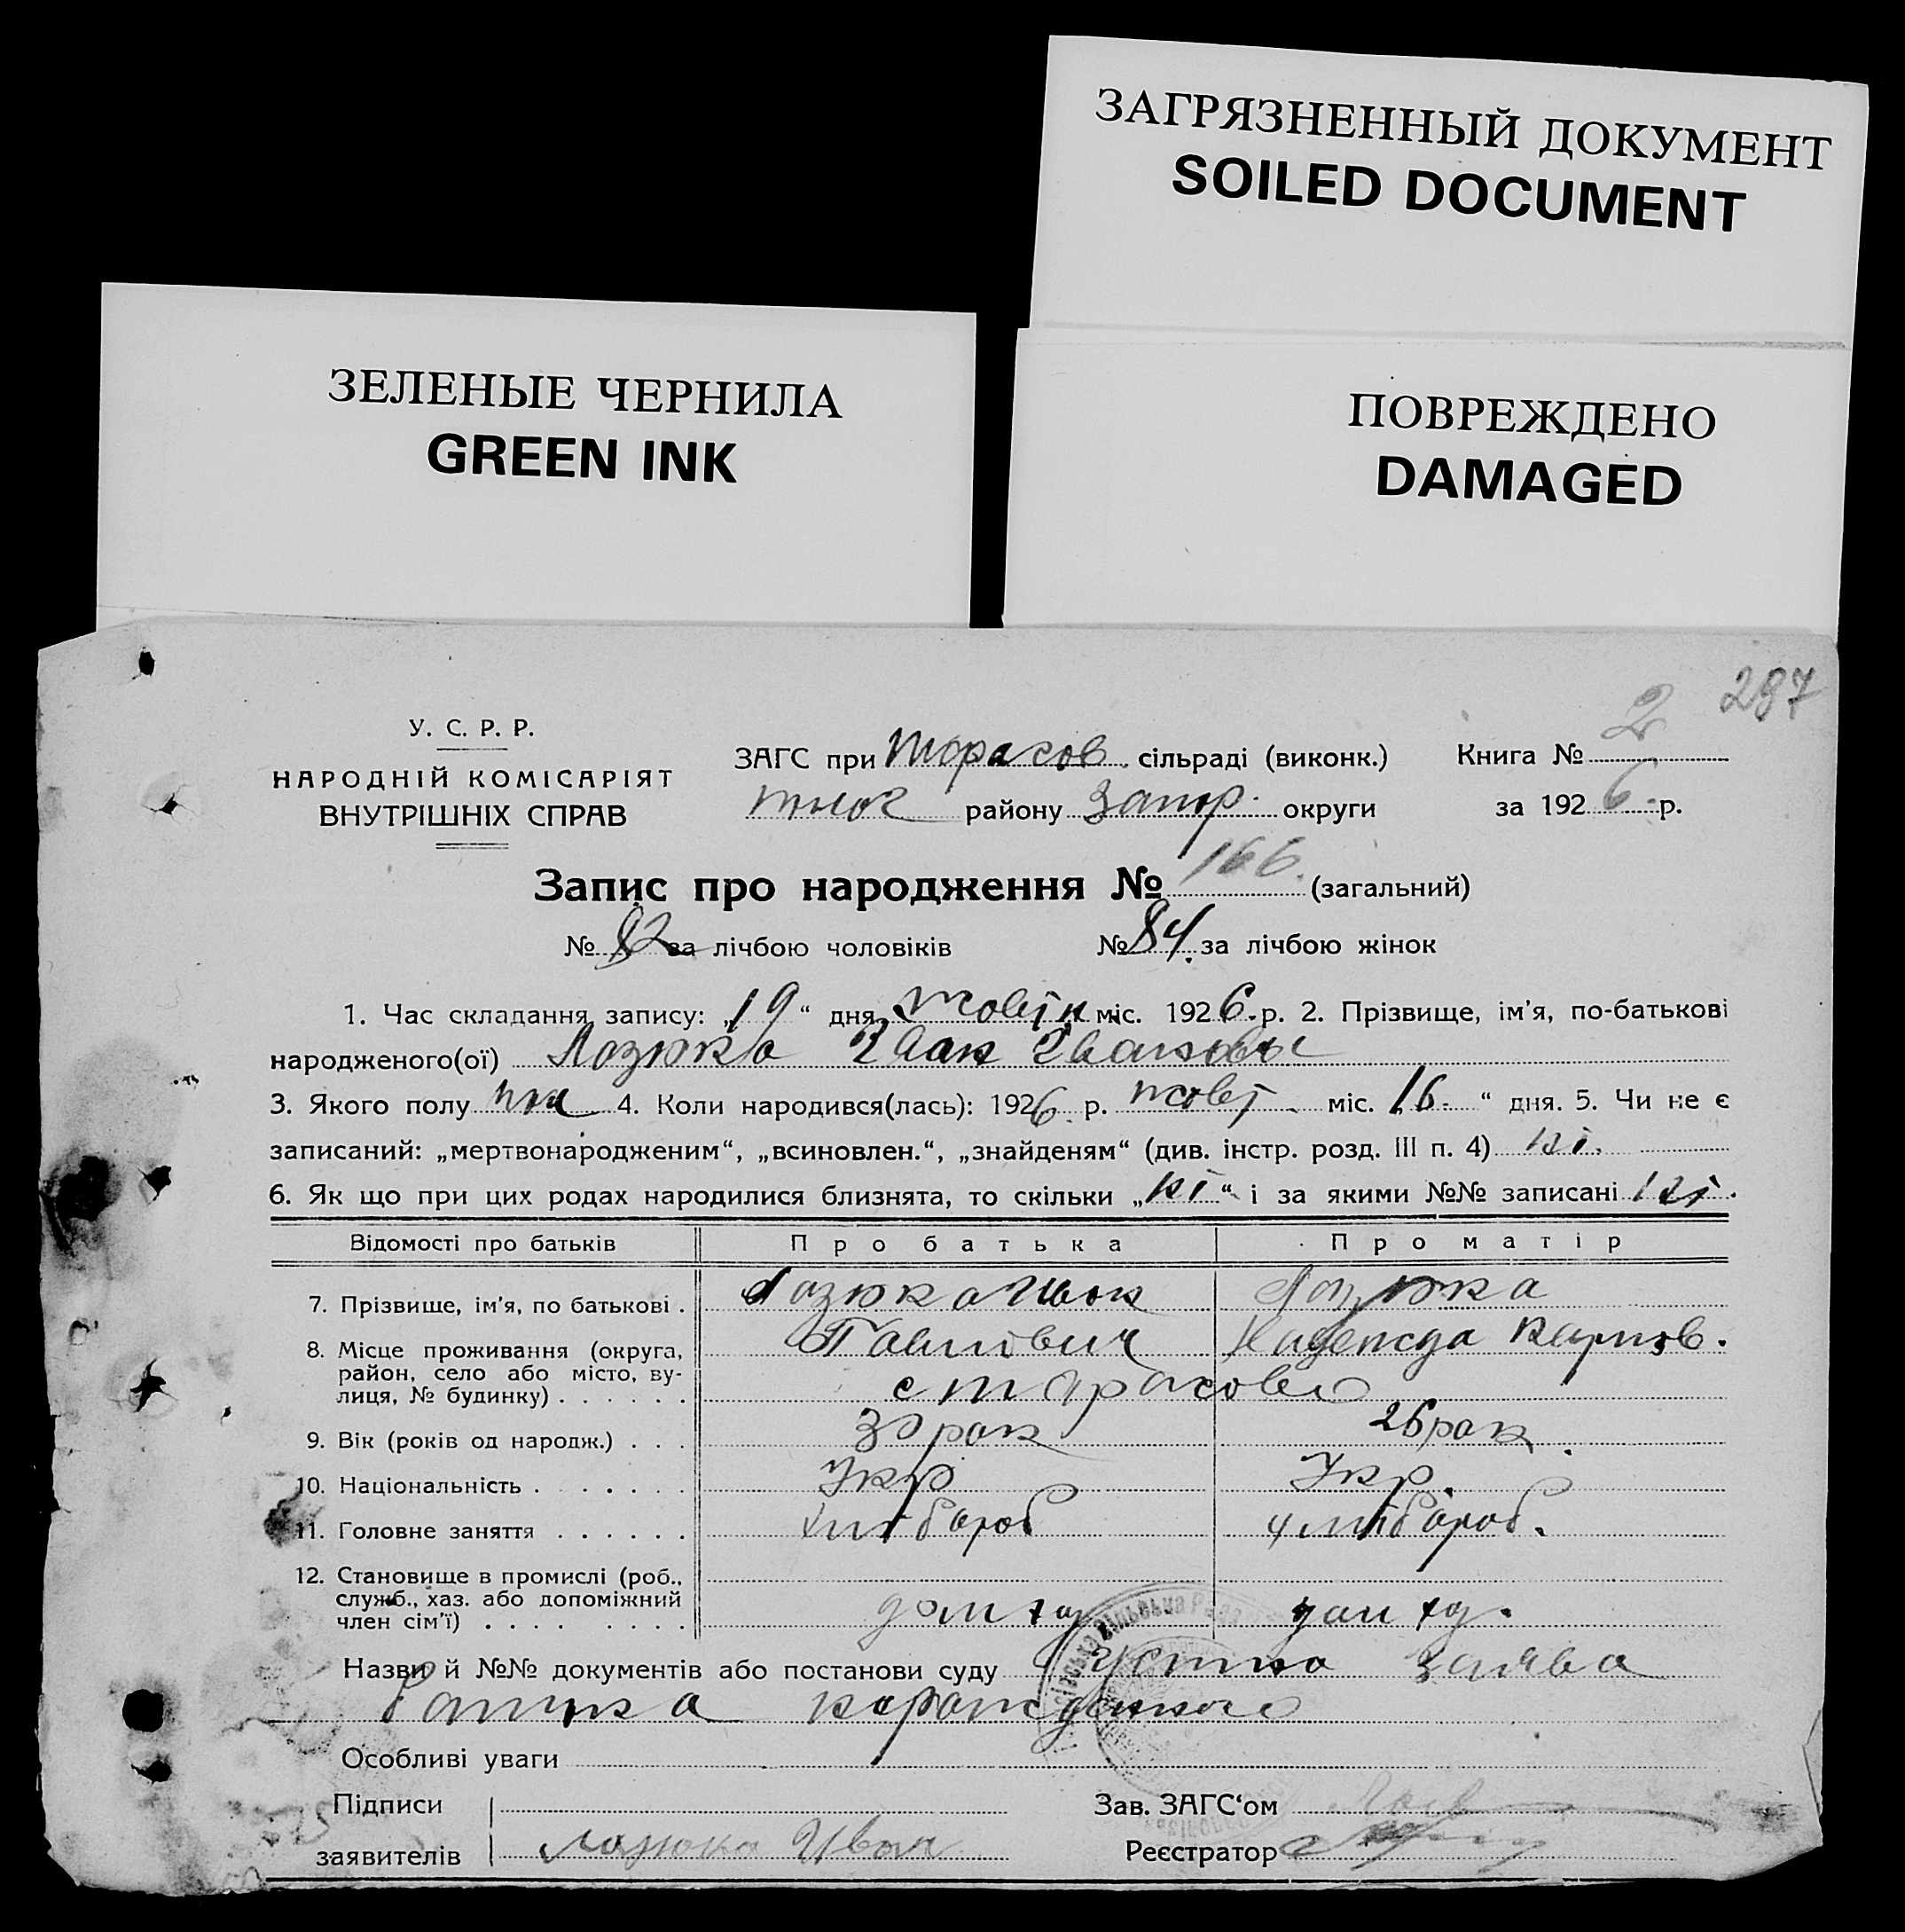 ЗАГРЯЗНЕННЫЙ ДОКУМЕНТ
SOILED DOCUMENT
ЗЕЛЕНЫЕ ЧЕРНИЛА
GREEN INK
ПОВРЕЖДЕНО
DAMAGED
297
У. С. Р. Р.
НАРОДНІЙ КОМІСАРІЯТ
ВНУТРІШНІХ СПРАВ
ЗАГС при Тарасов. сільраді (виконк.) Книга № 2
району Запор. округи за 1926 р.
Запис про народження № 166. (загальний)
№ 82 за лічбою чоловіків № 84. за лічбою жінок
1. Час складання запису: „19“ дня жовтн міс. 1926 р. 2. Прізвище, ім'я, по-батькові
народженого(ої) Лазюка
3. Якого полу 4. Коли народився(лась): 1926 р. жовт. міс. „16.“ дня. 5. Чи не є
записаний: „мертвонародженим“, „всиновлен.“, „знайденям“ (див. інстр. розд. III п. 4) ні.
6. Як що при цих родах народилися близнята, то скільки „ні“ і за якими №№ записані ні.
Відомості про батьків Про батька Про матір
7. Прізвище, ім'я, по батькові . Лазюка Иван Лазюка
Павлович Надежда Карпов.
8. Місце проживання (округа, район, село або місто, вулиця, № будинку) . . . . . . с Тарасовка
9. Вік (років од народж.) . . . 30 рок 26 рок
10. Національність . . . . . . . Укр Укр.
11. Головне заняття . . . . . . хлібороб хлібороб.
12. Становище в промислі (роб.,
служб., хаз. або допоміжний
член сім'ї) . . . . . . . .
Назви й №№ документів або постанови суду Устна заява
Особливі уваги
Підписи Зав. ЗАГС'ом
заявителів Лазюка Иван Реєстратор